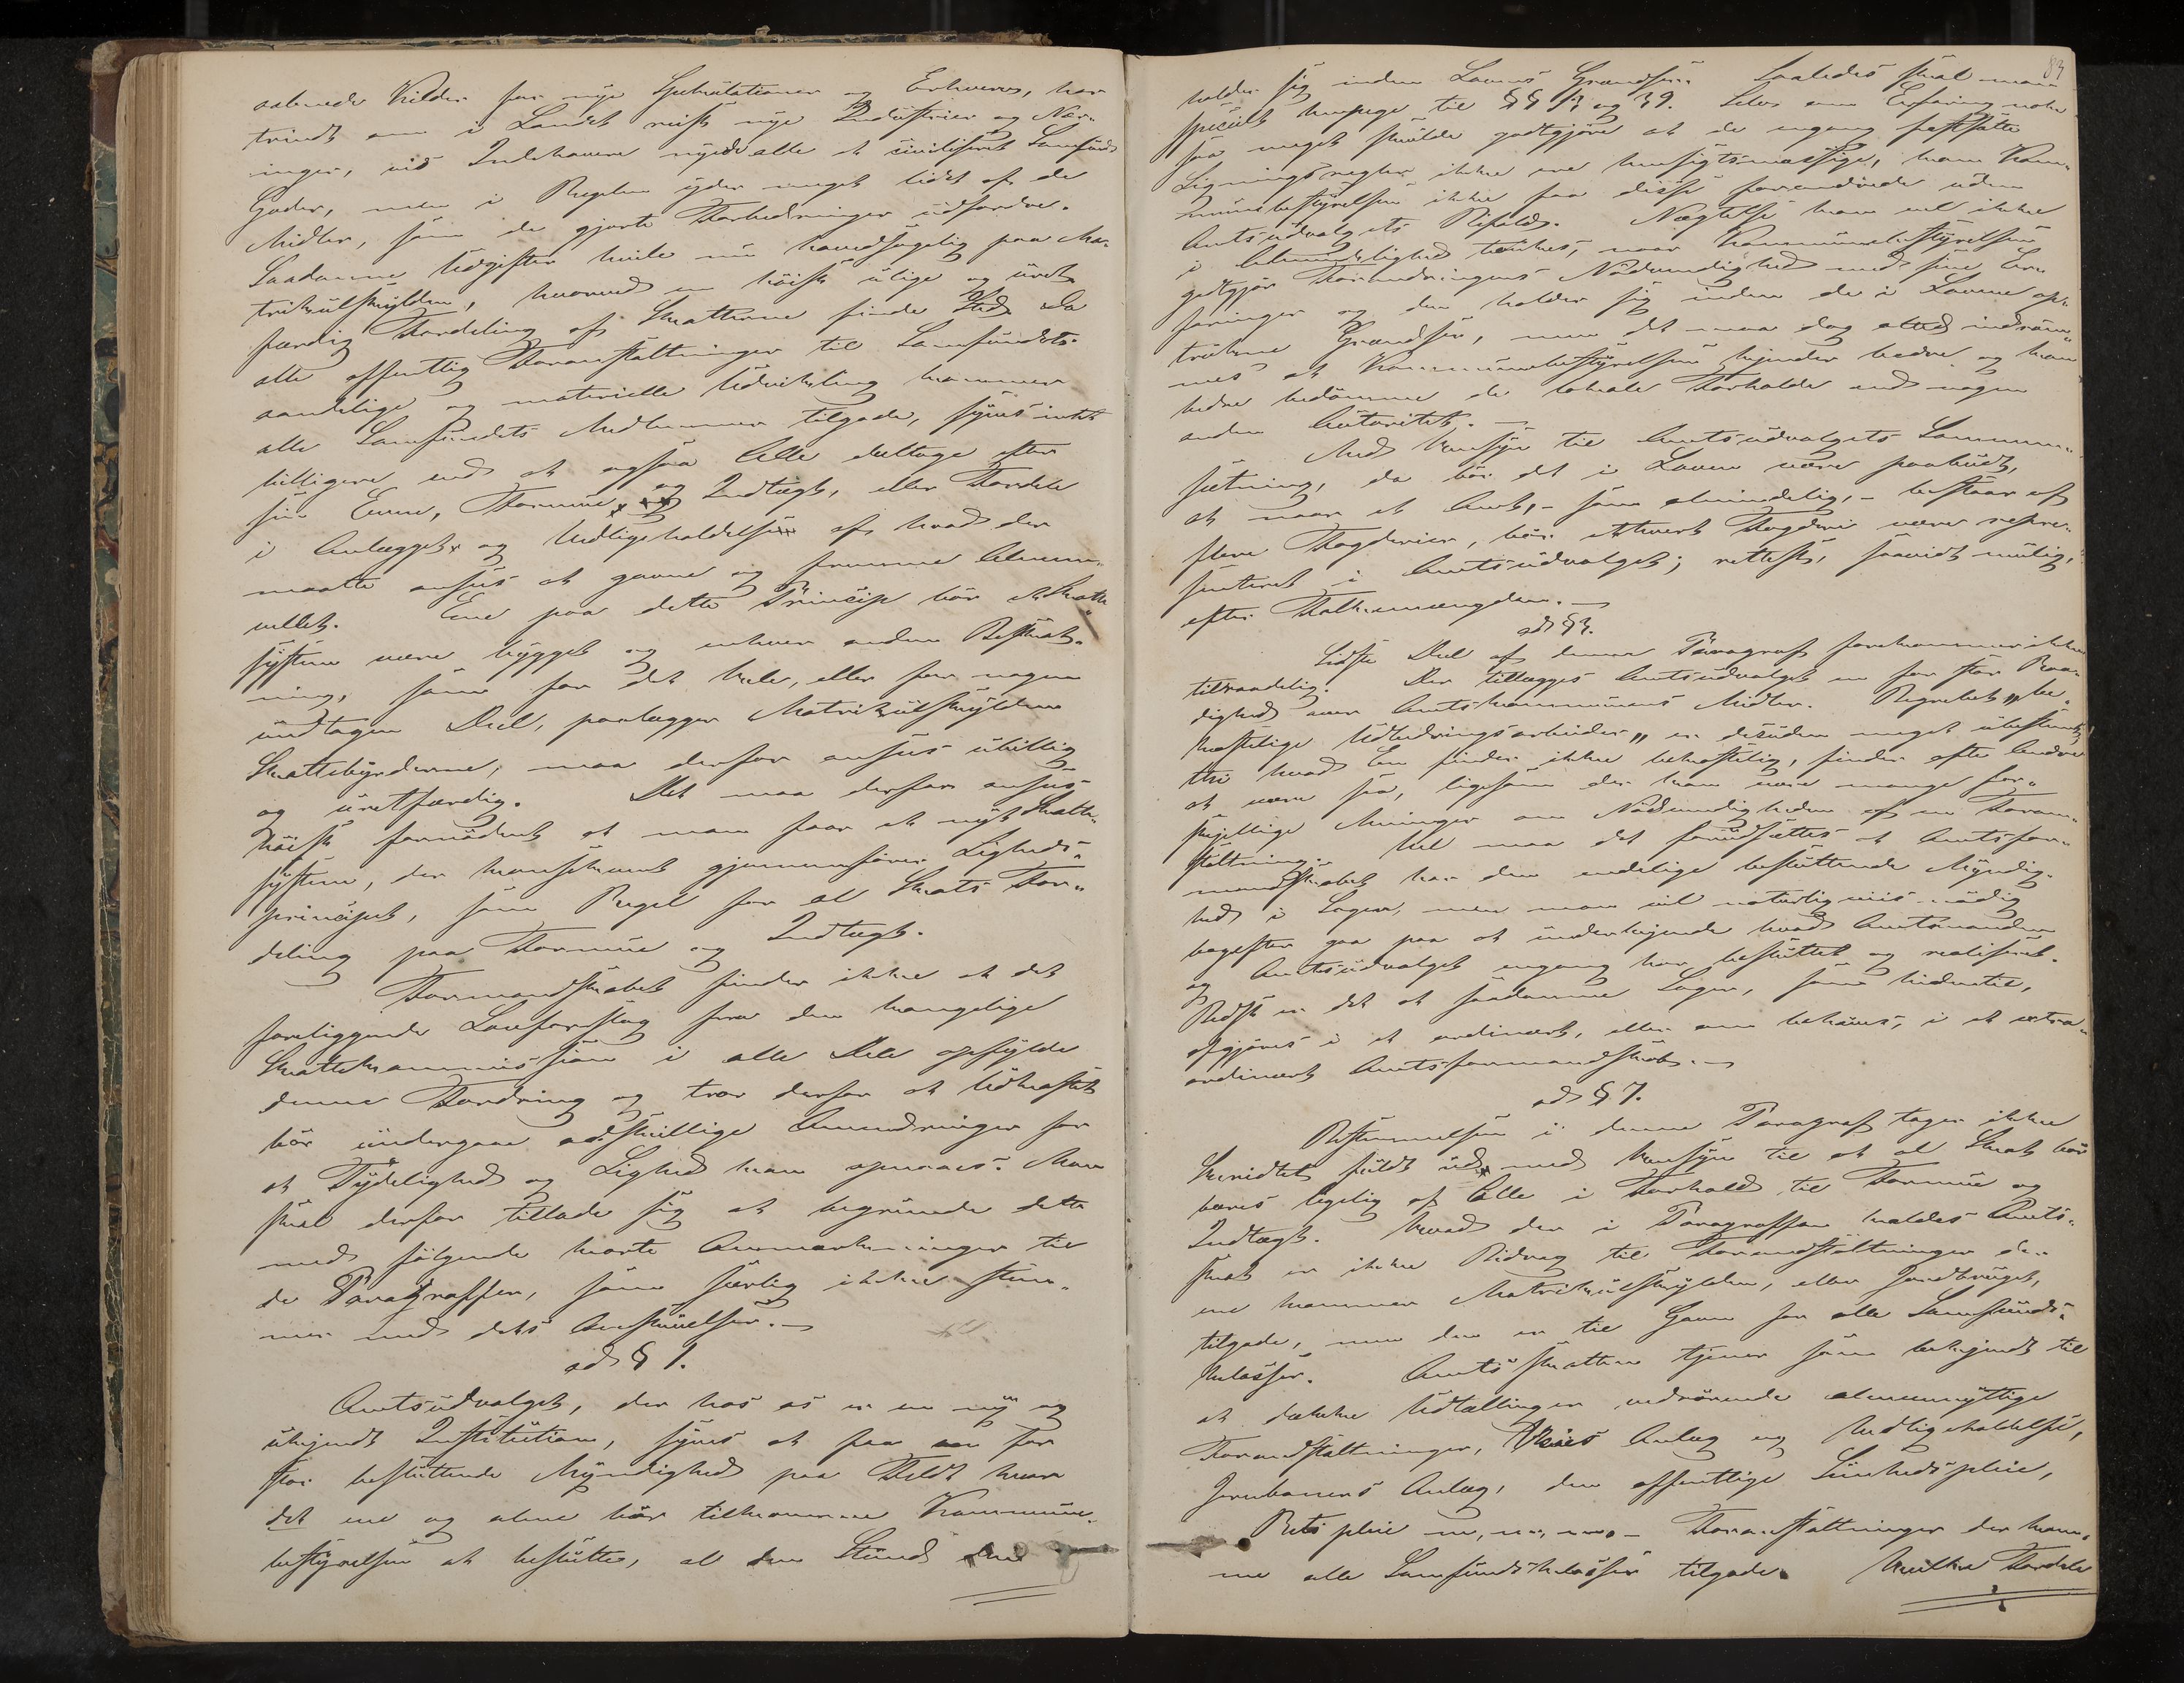 aabnede Kilder for nye Spekulationer og Erhverv, har
trindt om i Landet reist nye Industrier og Nær-
inger, vis Indehavere nyede alle et civiliseret Samfunds
Goder, men i Regelen yder meget lidet af de
Midler, som de gjorte Forbedringer udfordre.
Saadanne Udgifter hvile nu hovedsagelig paa Ma-
trikulskylden, hvorved en høist ulige og uret-
færdig Fordeling af Skatterne finder Sted. Da
alle offentlig Foranstaltninger til Samfundets
aandelige og materielle Udvikling kommer
alle Samfundets Medlemmer tilgode, synes intet
billigere end at ogsaa Alle deltage efter
sin Evne, Formue og Indtægt, eller Fordele
i Anlægget og Vedligeholdelsen af hvad der
maatte ansees at gavne og fremme Almen-
vellet. Ene paa dette Princip bør et Skatte
system være bygget og enhver anden Beskat-
ning, som for det Hele, eller for nogen
undtagen Deel, paalægger Matrikulskylden
Skattebyrderne, maa derfor ansees ubillig
og uretfærdig. Det maa derfor ansees
høist fornødent at man faar et nyt Skatte-
system, der konsekvent gjennemfører Ligheds-
principet, som Regel for al Skats For-
deling paa Formue og Indtægt.
Formandskabet finder ikke at det
foreliggende Lovforslag fra den kongelige
Skattekommission i alle Dele opfylde
denne Fordring og tror derfor at Udkastet
bør undergaae adskillige Ændringer for
at Tydelighed og Lighed kan opnaaes. Man
skal derfor tillade sig at begrunde dette
med følgende korte Anmærkninger til
de Paragraffer, som særlig ikke stem-
mer med dets Anskuelser.—
ad § 1.
Amtsudvalget, der hos os er en ny og
ukjendt Institution, synes at faa en for
stor besluttende Myndighed paa Feldt hvor
det ene og alene bør tilkomme Kommune-
bestyrelsen at beslutte, al den Stund den
83
holder sig inden Lovens Grændser. Saaledes skal man
specielt henpege til §§ 13 og 39. Selv om Erfaring nok
saa meget skulde godtgjøre at de engang fastsatte
Ligningsregler ikke ere hensigtsmæssige, kan Kom-
munebestyrelsen ikke faa disse forandrede uden
Amtsudvalgets Bifald. Nægtelse kan vel ikke
i Almindelighed tænkes, naar Kommunebestyrelsen
godtgjør Forandringens Nødvendighed med sine Er-
faringer og den holder sig inden de i Loven op-
trukne Grændser, men det maa dog altid indrøm-
mes at Kommunebestyrelsen kjender bedre og kan
bedre bedømme de lokale Forholde end nogen
anden Autoritet.—
Med Hensyn til Amtsudvalgets Sammen-
sætning, da bør det i Loven være paabudt,
at naar et Amt,- som almindelig,- bestaar af
flere Fogderier, bør ethvert Fogderi være repre-
senteret i Amtsudvalget; rettest, saavidt mulig,
efter Folkemængden.—
ad § 3.
Sidste Deel af denne Paragraf forekommer ikke
tilraadelig. Der tillægges Amtsudvalget en for stor Raa-
dighed over Amtskommunens Midler. Begrebet „be-
kostelige Udbedringsarbeider„ er desuden meget ubestemt,
thi hvad En finder ikke bekostelig, finder ofte Andre
at være saa, ligesom der kan være mange for-
skjellige Meninger om Nødvendigheden af en Foran-
staltning. Vel maa det forudsættes at Amtsfor-
mandskabet har den endelige besluttende Myndig-
hed i Sagen, men man vil naturligviis nødig
bagefter gaa paa at underkjende hvad Amtmanden
og Amtsudvalget engang har besluttet og realiseret.
Bedst er det at saadanne Sager, som hidentil,
afgjøres i et ordinært, eller om behøves, i et extra-
ordinært Amtsformandskab.—
ad § 7.
Bestemmelsen i denne Paragraf tager ikke
Skridtet fuldt ud med Hensyn til at al Skat bør
bæres ligelig af Alle i Forhold til Formue og
Indtægt. Hvad der i Paragraffen kaldes Amts-
skat er ikke Bidrag til Foranstaltninger der
ene kommer Matrikulskylden, eller Jordbruget,
tilgode, men den er til Gavn for alle Samfunds-
klasser. Amtsskatten tjener som bekjendt til
at dække Udtællinger vedrørende almennyttige
Foranstaltninger, Veies Anlæg og Vedligeholdelse,
Jernbaners Anlæg, den offentlige Sundhedspleie,
Retspleie m, m, m.- Foranstaltninger der kom-
me alle Samfundsklasser tilgode. Hvilke Fordele